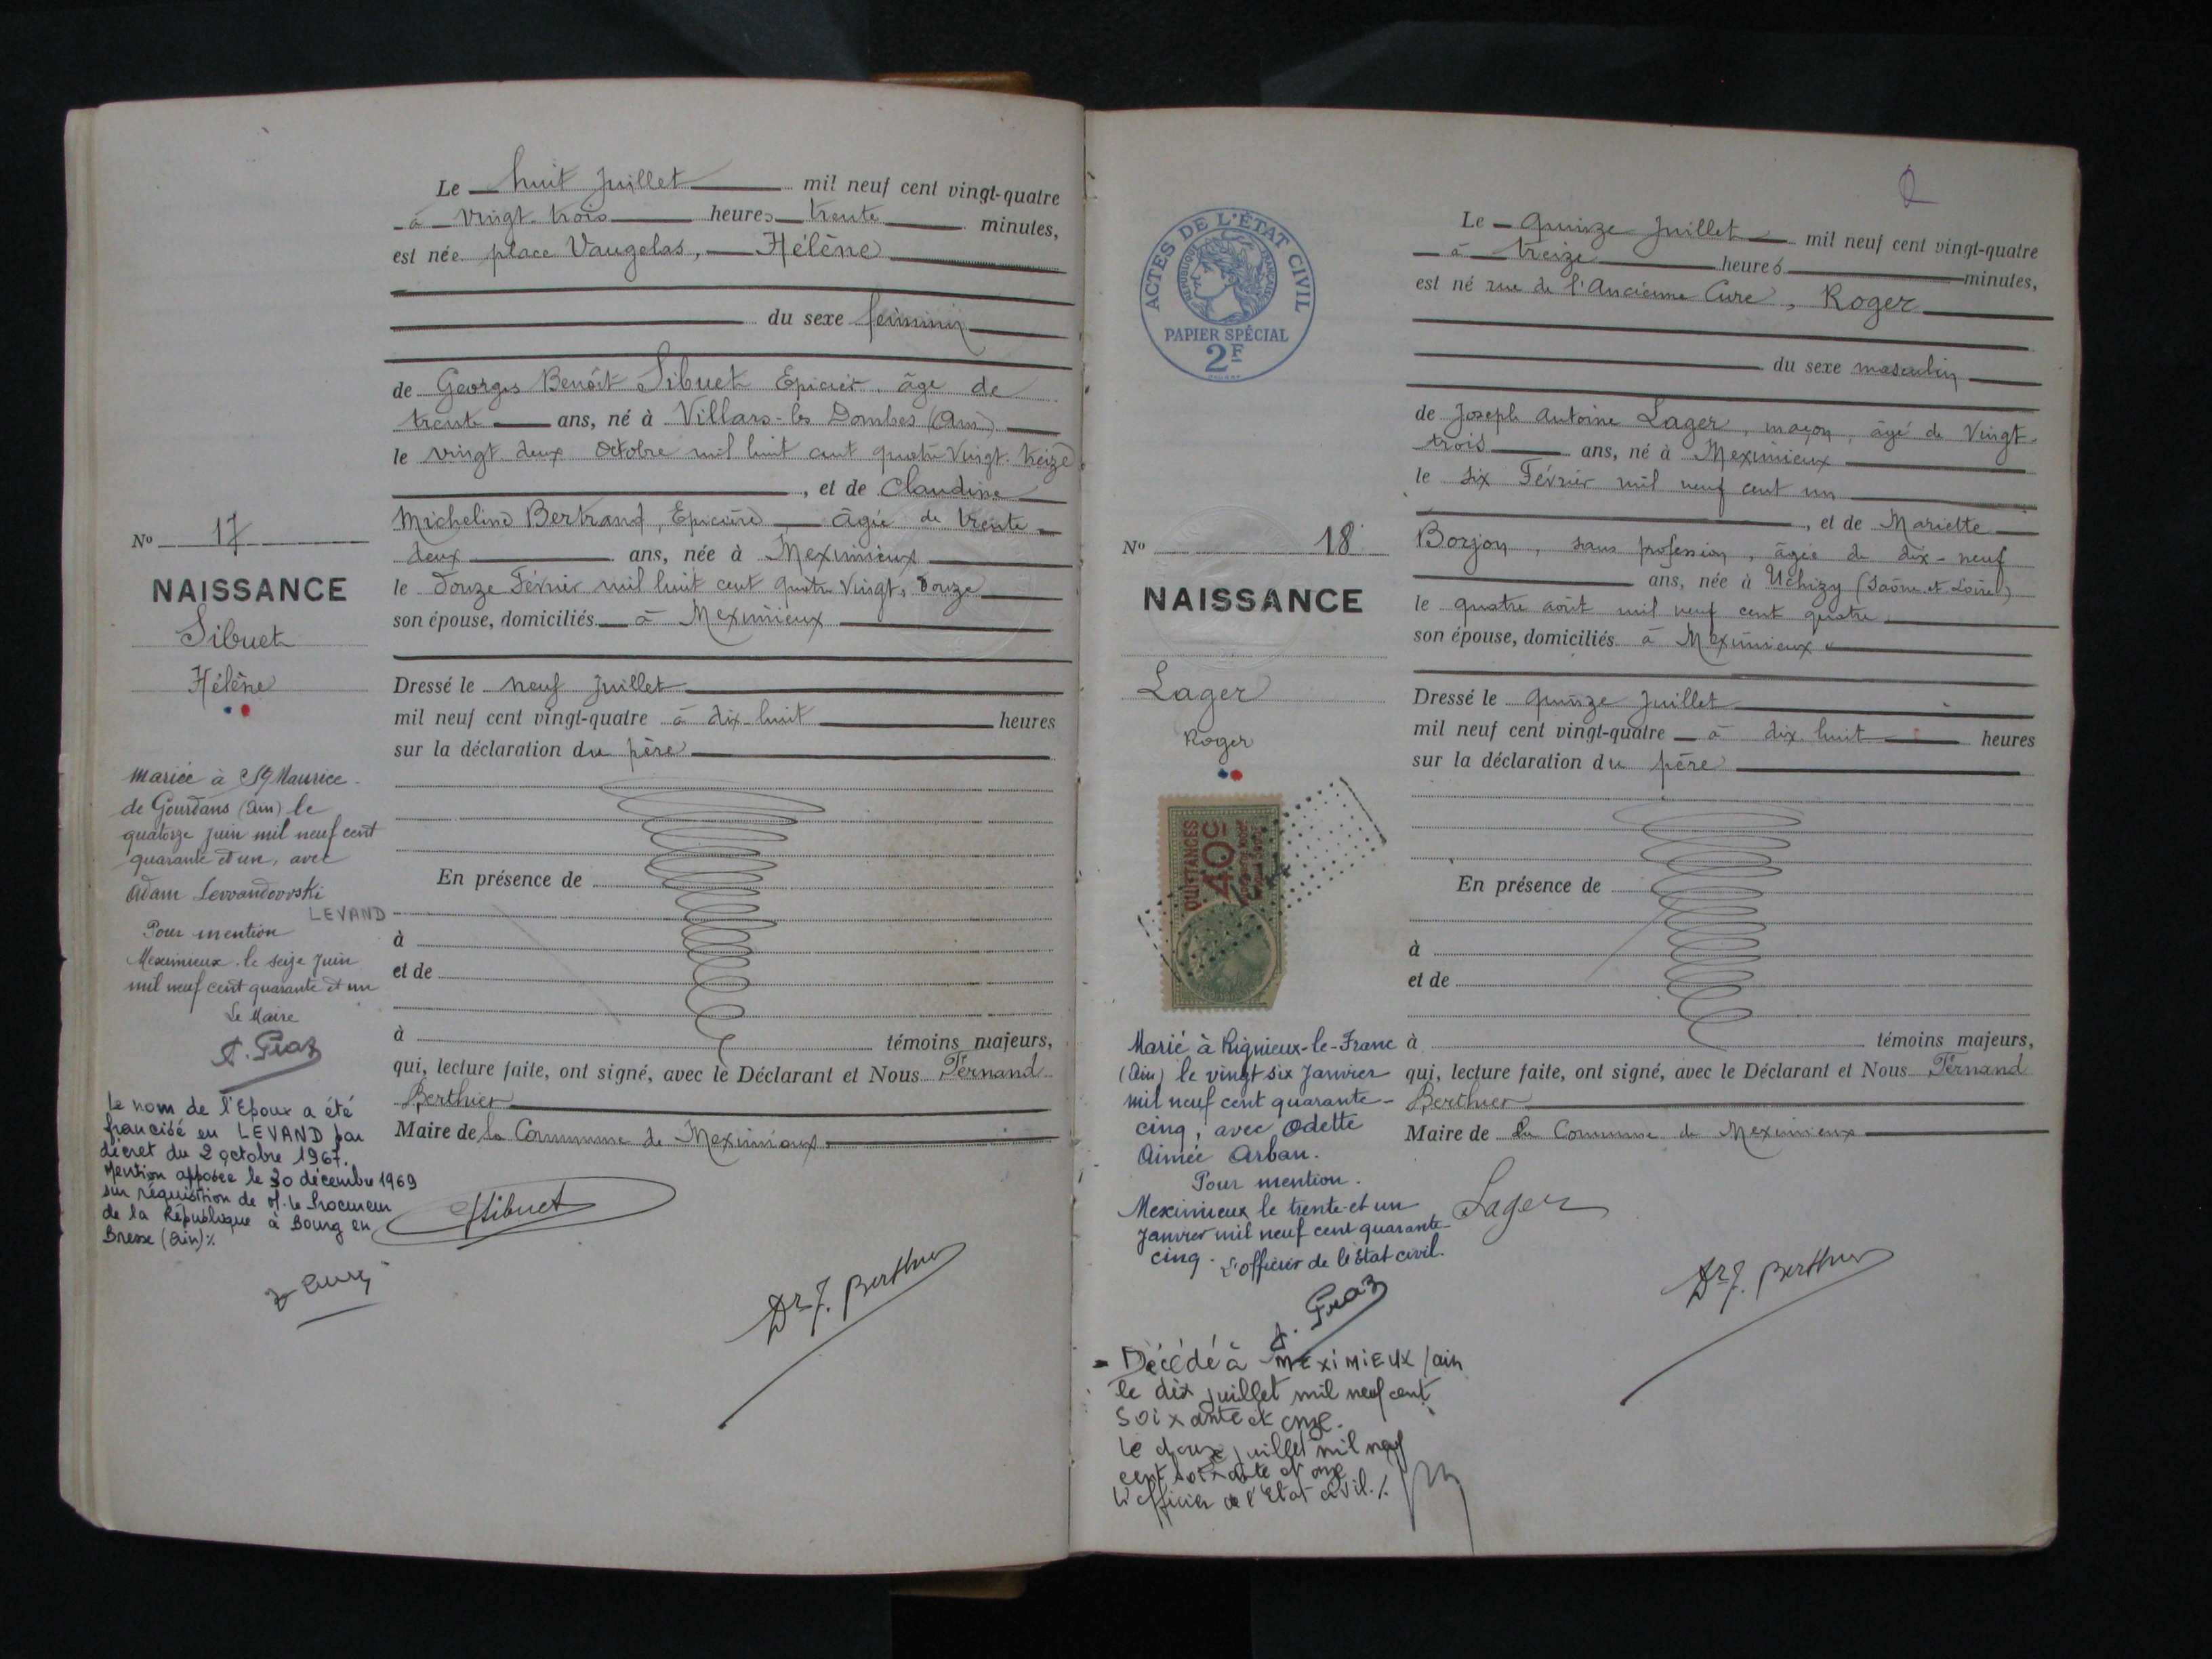 Le huit Juillet mil neuf cent vingt-quatre
à vingt-trois heures trente minutes,
est née place Vaugelas, Hélène
du sexe féminin
de Georges Benoît Sibuet Epicier, âgé de
trente ans, né à Villars-les Dombes (Ain)
le vingt deux Octobre mil huit cent quatre vingt treize
, et de Claudine
Micheline Bertrand, Epicière, âgée de trente
deux ans, née à Meximieux
le douze Février mil huit cent quatre vingt douze
son épouse, domiciliés à Meximieux
Dressé le neuf Juillet
mil neuf cent vingt-quatre à dix-huit heures
sur la déclaration du père
En présence de
à
et de
à témoins majeurs,
qui, lecture faite, ont signé, avec le Déclarant et Nous Fernand
Berthier
Maire de la Commune de Meximieux
Sibuet
Dr F. Berthier
No 17
NAISSANCE
Sibuet
Hélène
Mariée à St Maurice-
de Gourdans (Ain) le
quatorze juin mil neuf cent
quarante et un, avec
Adam Lewandowski
LEVAND
Pour mention
Meximieux le seize Juin
mil neuf cent quarante et un
Le Maire
Le nom de l'Epoux a été
francisé en LEVAND par
décret du 2 octobre 1967.
Mention apposée le 30 décembre 1969
sur réquisition de M. le Procureur
de la République à Bourg en
Bresse (Ain)
ACTES DE L'ÉTAT CIVIL
RÉPUBLIQUE FRANÇAISE
PAPIER SPÉCIAL
2F
Le quinze Juillet mil neuf cent vingt-quatre
à treize heures minutes,
est né rue de l'Ancienne Cure, Roger
du sexe masculin
de Joseph Antoine Lager, maçon, âgé de Vingt-
trois ans, né à Meximieux
le six Février mil neuf cent un
, et de Mariette
Borjon, sans profession, âgée de dix-neuf
ans, née à Uchizy (Saône et Loire)
le quatre août mil neuf cent quatre
son épouse, domiciliés à Meximieux
Dressé le quinze Juillet
mil neuf cent vingt-quatre à dix huit heures
sur la déclaration du père
En présence de
à
et de
à témoins majeurs,
qui, lecture faite, ont signé, avec le Déclarant et Nous Fernand
Berthier
Maire de la Commune de Meximieux
Lager
Dr F. Berthier
No 18
NAISSANCE
Lager
Roger
QUITTANCES
40c
Marié à Rignieux-le-Franc
(Ain) le vingt six Janvier
mil neuf cent quarante-
cinq, avec Odette
Aimée Arban.
Pour mention.
Meximieux le trente-et un
Janvier mil neuf cent quarante
cinq. L'officier de l'état civil.
Décédé à MEXIMIEUX / ain
le dix juillet mil neuf cent
soixante et onze.
Le douze juillet mil neuf
cent soixante et onze
L'officier de l'Etat civil./.